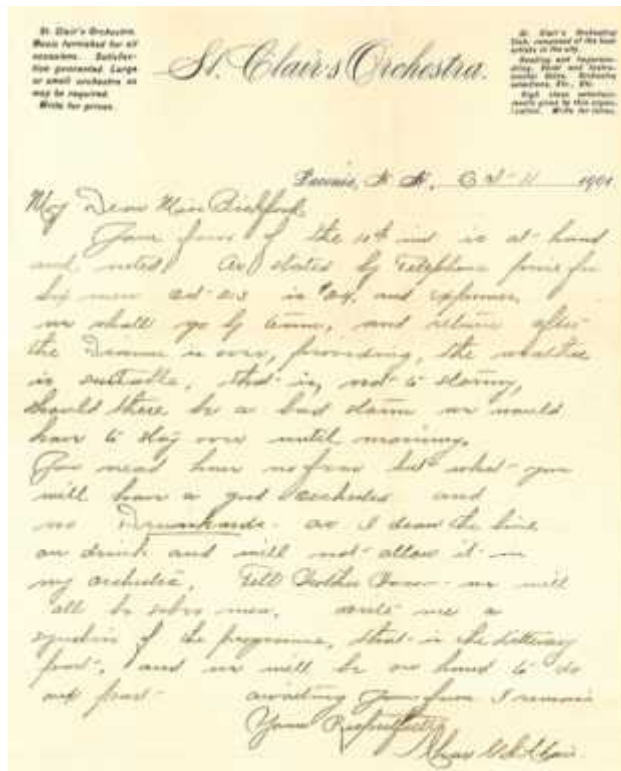 St. Clair's Orchestra.
Music furnished for all
occasions. Satisfac-
tion guaranteed. Large
or small orchestra as
may be required.
Write for prices.
St. Clair's Orchestra.
St. Clair's Orchestral
Club, composed of the best
artists in the city.
Reading and
Vocal and Instru-
mental Solos, Orchestra
selections, Etc., Etc.
High class entertain-
ments given by this organ-
ization. Write for terms.
Oct 11 1901
My Dear Miss
Your favor of the 10th inst is at hand
and noted. As stated by Telephone price for
six men is $24. and expenses.
we shall go by team, and return after
the Dance is over, providing, the weather
is suitable, that is, not to stormy,
should there be a bad storm we would
have to stay over until morning.
You need have no fear but what you
will have a good orchestra and
no Drunkards as I draw the line
on drink and will not allow it in
my orchestra. Tell Brother we will
all be sober men. me a
of the programme, that is the
part, and we will be on hand to do
our part awaiting your favor I remain
Yours Respectfully
Chas St. Clair.